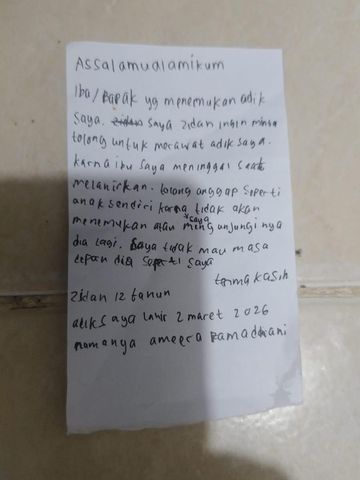 Assalamualamikum
Iba/Bapak yg menemukan adik
saya. saya zidan ingin minta
tolong untuk merawat adik saya.
karna ibu saya meninggal saat
melahirkan. tolong anggap seperti
anak sendiri karna tidak akan
saya
menemukan atau mengunjungi nya
dia lagi. saya tidak mau masa
depan dia seperti saya
terma kasih
Zidan 12 tahun
adik saya lahir 2 maret 2026
namanya ameera ramadhani